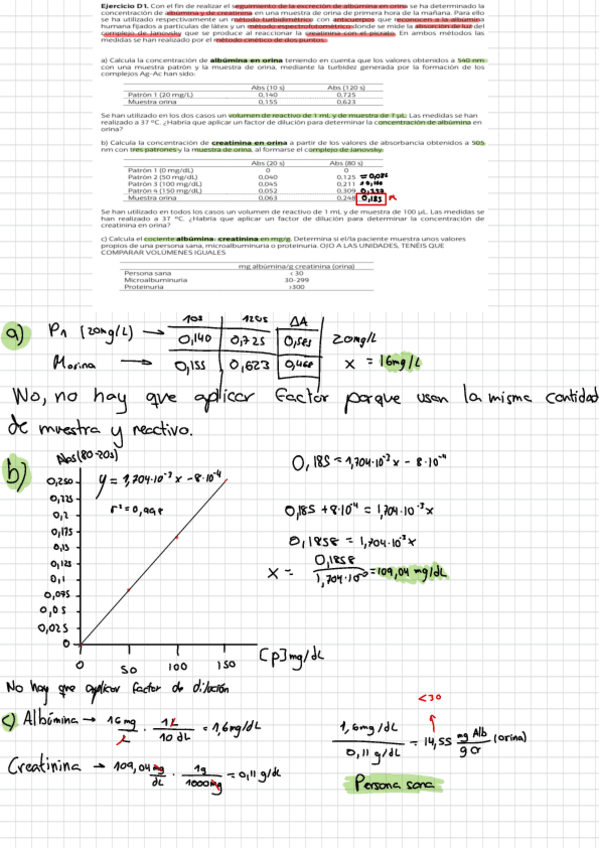 Ejercicio D1. Con el fin de realizar el seguimiento de la excreción de albúmina en orina se ha determinado la
concentración de albúmina y de creatinina en una muestra de orina de primera hora de la mañana. Para ello
se ha utilizado respectivamente un método turbidimétrico con anticuerpos que reconocen a la albúmina
humana fijados a partículas de látex y un método espectrofotométrico donde se mide la absorción de luz del
complejo de Janovsky que se produce al reaccionar la creatinina con el picrato. En ambos métodos las
medidas se han realizado por el método cinético de dos puntos.
a) Calcula la concentración de albúmina en orina teniendo en cuenta que los valores obtenidos a 540 nm
con una muestra patrón y la muestra de orina, mediante la turbidez generada por la formación de los
complejos Ag-Ac han sido:
Abs (10 s) Abs (120 s)
Patrón 1 (20 mg/L) 0,140 0,725
Muestra orina 0,155 0,623
Se han utilizado en los dos casos un volumen de reactivo de 1 mL y de muestra de 7 µL. Las medidas se han
realizado a 37 ºC. ¿Habría que aplicar un factor de dilución para determinar la concentración de albúmina en
orina?
b) Calcula la concentración de creatinina en orina a partir de los valores de absorbancia obtenidos a 505
nm con tres patrones y la muestra de orina, al formarse el complejo de Janovsky.
Abs (20 s) Abs (80 s)
Patrón 1 (0 mg/dL) 0 0
Patrón 2 (50 mg/dL) 0,040 0,125 = 0,085
Patrón 3 (100 mg/dL) 0,045 0,211 = 0,166
Patrón 4 (150 mg/dL) 0,052 0,309
Muestra orina 0,063 0,248 0,185
Se han utilizado en todos los casos un volumen de reactivo de 1 mL y de muestra de 100 µL. Las medidas se
han realizado a 37 ºC. ¿Habría que aplicar un factor de dilución para determinar la concentración de
creatinina en orina?
c) Calcula el cociente albúmina: creatinina en mg/g. Determina si el/la paciente muestra unos valores
propios de una persona sana, microalbuminuria o proteinuria. OJO A LAS UNIDADES, TENÉIS QUE
COMPARAR VOLÚMENES IGUALES
mg albúmina/g creatinina (orina)
Persona sana < 30
Microalbuminuria 30-299
Proteinuria >300
10s 120s ΔA
a) P1 (20mg/L) → 0,140 0,725 0,585 20mg/L
Morina → 0,155 0,623 0,468 x = 16mg/L
No, no hay que aplicar factor porque usan la misma cantidad
de muestra y reactivo.
b) Abs(80-20s)
y = 1,704·10⁻³ x - 8·10⁻⁴
r² = 0,998
0,250
0,225
0,2
0,175
0,15
0,125
0,1
0,095
0,05
0,025
0
0 50 100 150 [p] mg/dL
0,185 = 1,704·10⁻³ x - 8·10⁻⁴
0,185 + 8·10⁻⁴ = 1,704·10⁻³ x
0,1858 = 1,704·10⁻³ x
x = 0,1858 / 1,704·10⁻³ = 109,04 mg/dL
No hay que aplicar factor de dilución
c) Albúmina → 16 mg / L · 1L / 10 dL = 1,6 mg/dL
Creatinina → 109,04 mg / dL · 1g / 1000 mg = 0,11 g/dL
<30
1,6 mg/dL / 0,11 g/dL = 14,55 mg Alb / g Cr (orina)
Persona sana